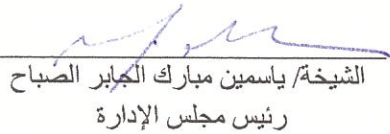 الشيخة/ ياسمين مبارك الجابر الصباح
رئيس مجلس الإدارة